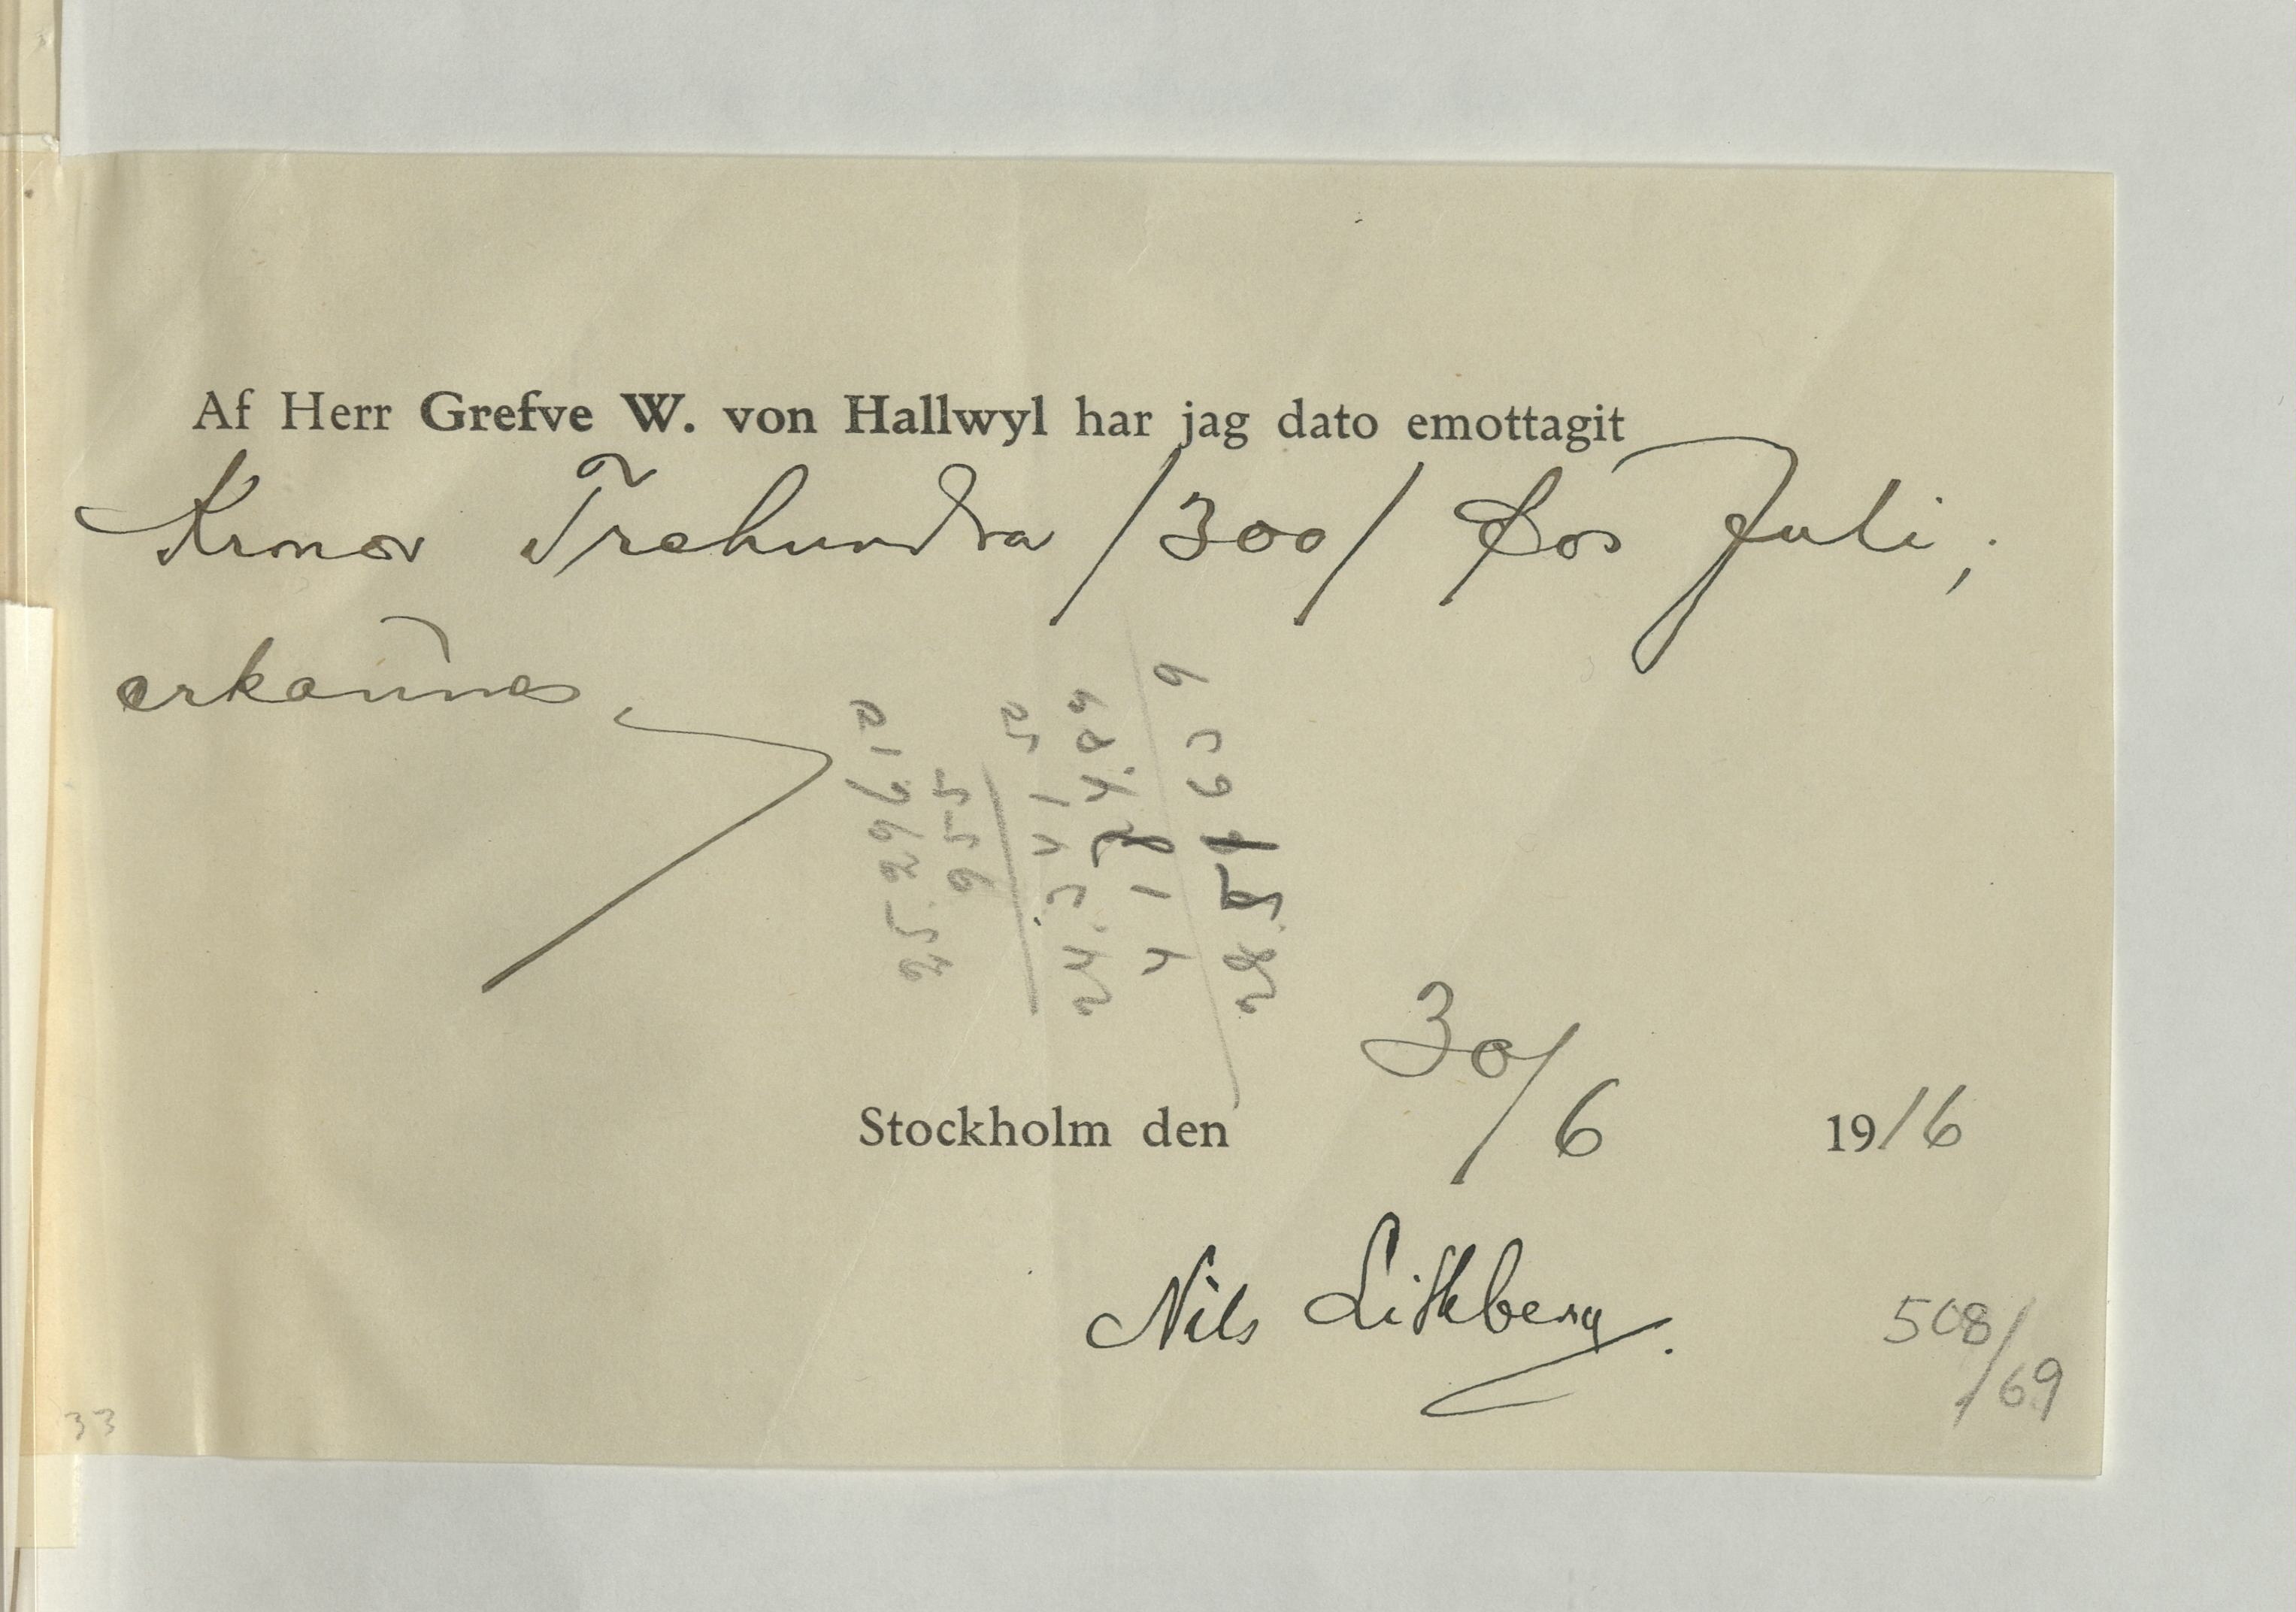 Af Herr Grefve W. von Hallwyl har jag dato emottagit
Kronor Trehundra /300/ för Juli,
erkännes
Stockholm den 30/6 1916
Nils Lithberg.
508/69
33